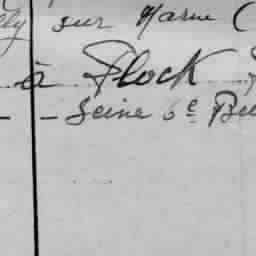 lly sur Marne (
à Plock
- - Seine 6e Bu